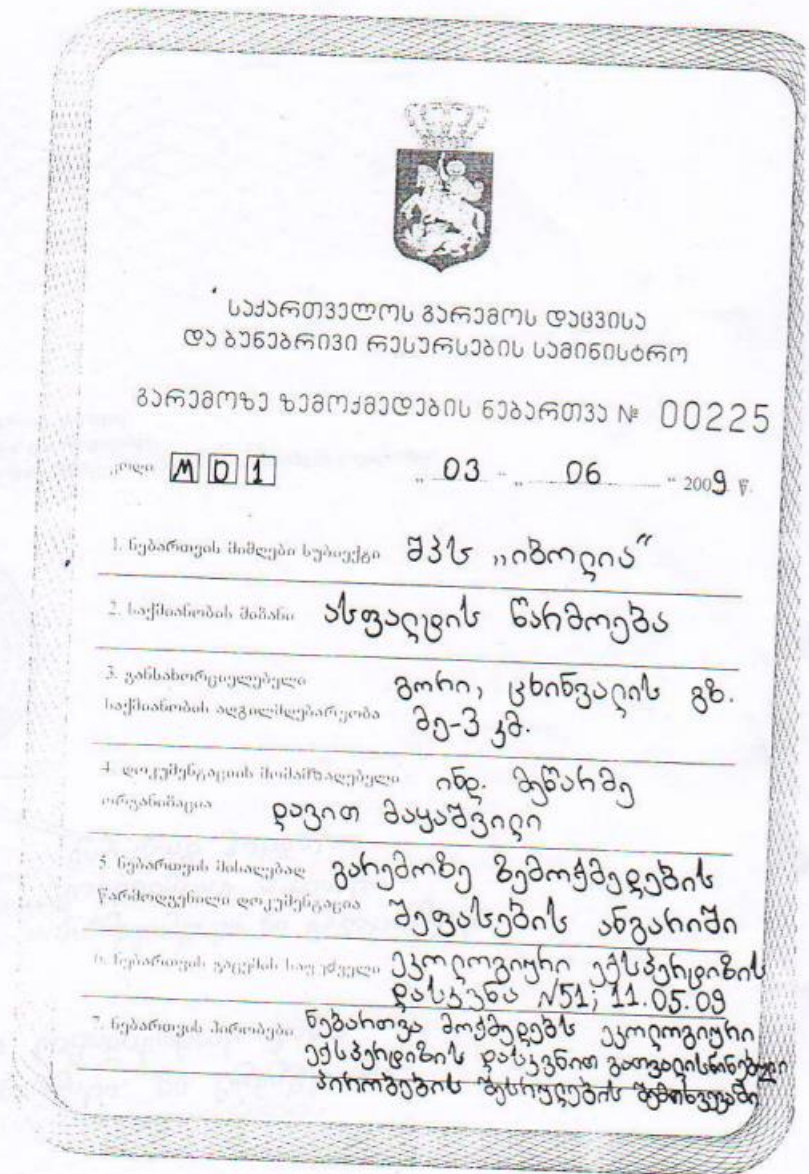 საქართველოს გარემოს დაცვისა
და ბუნებრივი რესურსების სამინისტრო
გარემოზე ზემოქმედების ნებართვა № 00225
კოდი MD1 „ 03 “ „ 06 “ 2009 წ.
1. ნებართვის მიმღები სუბიექტი შპს „იზოლია“
2. საქმიანობის მიზანი ასფალტის წარმოება
3. განსახორციელებელი გორი, ცხინვალის გზ.
საქმიანობის ადგილმდებარეობა მე-3 კმ.
4. დოკუმენტაციის მომამზადებელი ინდ. მეწარმე
ორგანიზაცია დავით მაყაშვილი
5. ნებართვის მისაღებად გარემოზე ზემოქმედების
წარმოდგენილი დოკუმენტაცია შეფასების ანგარიში
6. ნებართვის გაცემის საფუძველი ეკოლოგიური ექსპერტიზის
დასკვნა N51; 11.05.09
7. ნებართვის პირობები ნებართვა მოქმედებს ეკოლოგიური
ექსპერტიზის დასკვნით გათვალისწინებული
პირობების შესრულების შემთხვევაში